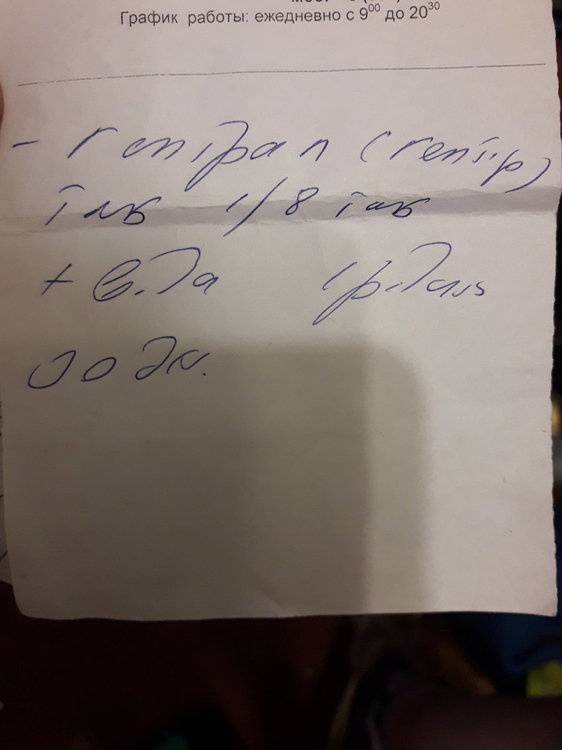 График работы: ежедневно с 9⁰⁰ до 20³⁰
- Гептрал (гептр)
таб 1/8 таб
+ вода 1 р. день
30 дн.